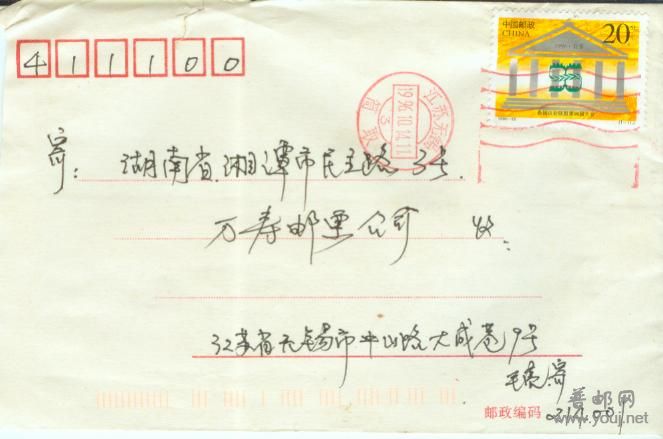 411100
中国邮政
CHINA
20分
江苏无锡
1996.10.14.11
寄：湖南省湘潭市民主路3号
万寿邮票公司 收
江苏省无锡市中山路大成巷9号
寄
邮政编码 214001
普邮网
www.youj.net